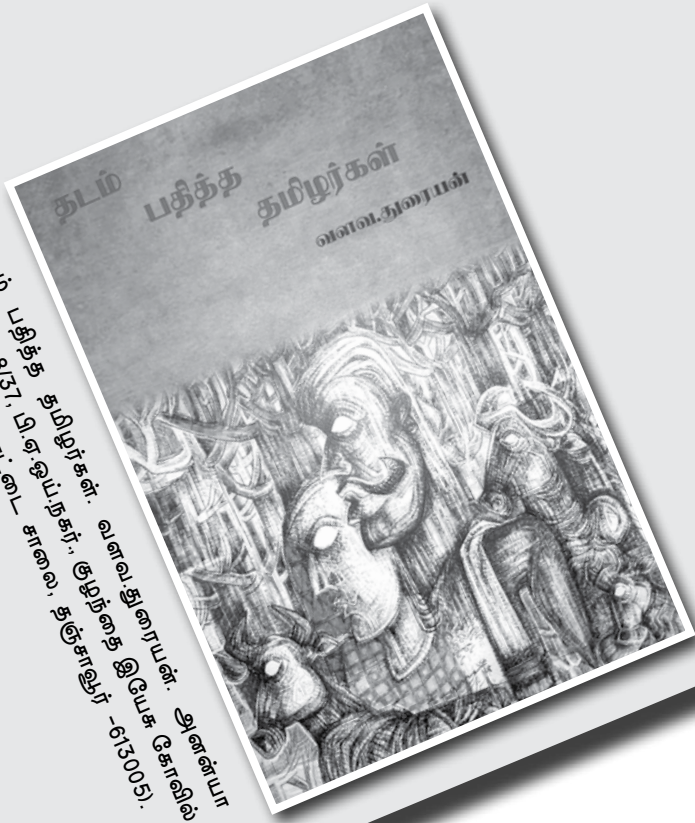 தடம் பதித்த தமிழர்கள்
வளவ.துரையன்
பதித்த தமிழர்கள். வளவ.துரையன். அனன்யா
8/37, பி.ஏ.ஒய்.நகர்., குழந்தை இயேசு கோவில்
சாலை, தஞ்சாவூர் -613005).